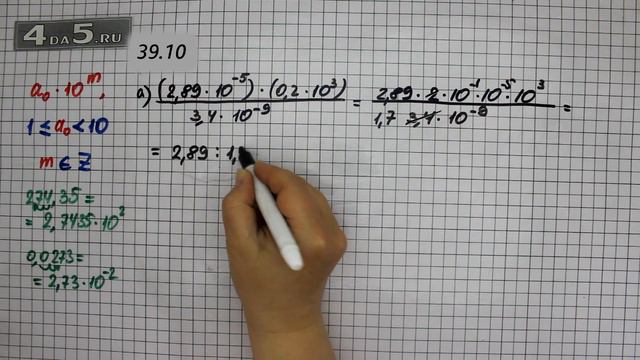 4DA5.RU
39.10
a₀ · 10ᵐ,
1 ≤ a₀ < 10
m ∈ Z
274,35 =
= 2,7435 · 10²
0,0273 =
= 2,73 · 10⁻²
а) (2,89 · 10⁻⁵) · (0,2 · 10³) / 3,4 · 10⁻⁹ = 2,89 · 2 · 10⁻¹ · 10⁻⁵ · 10³ / 1,7 3,4 · 10⁻⁹ =
= 2,89 : 1,